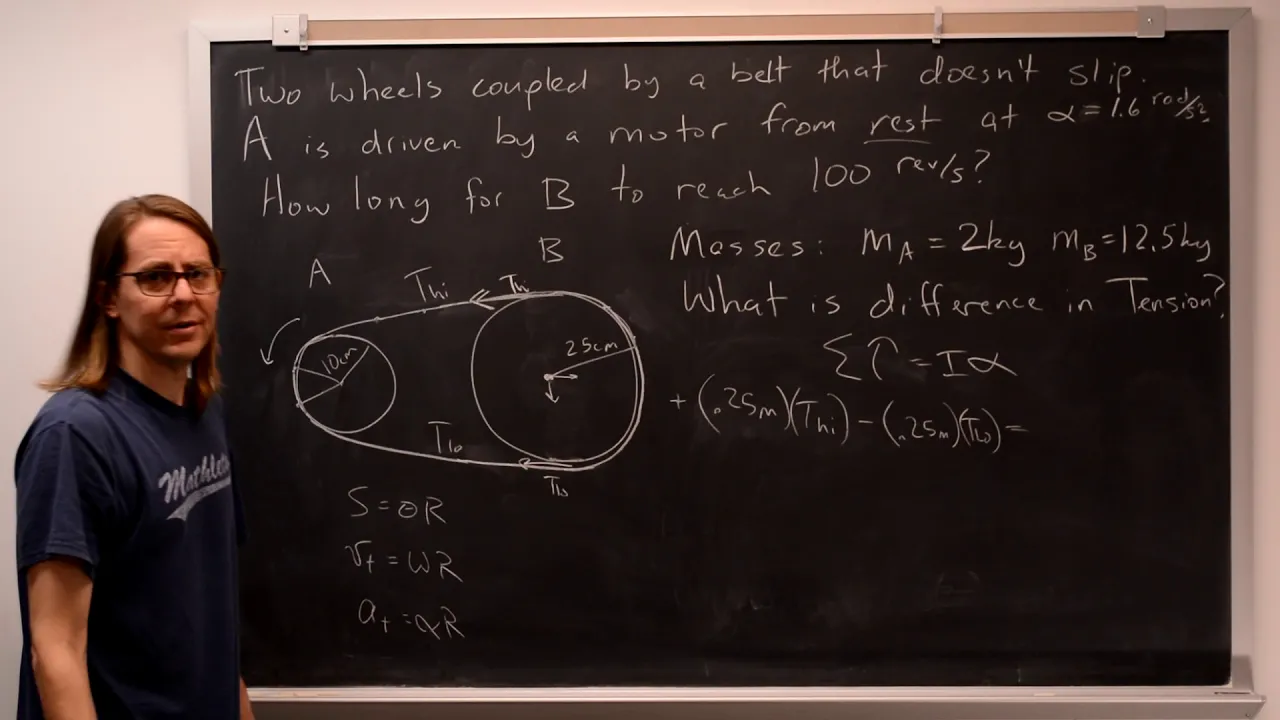 Two wheels coupled by a belt that doesn't slip.
A is driven by a motor from rest at α = 1.6 rad/s²
How long for B to reach 100 rev/s?
Masses: mA = 2kg mB = 12.5kg
What is difference in Tension?
A
B
Thi
Thi
10cm
25cm
Στ = Iα
+ (.25m)(Thi) - (.25m)(Tlo) =
Tlo
Tlo
S = θR
vt = ωR
at = αR